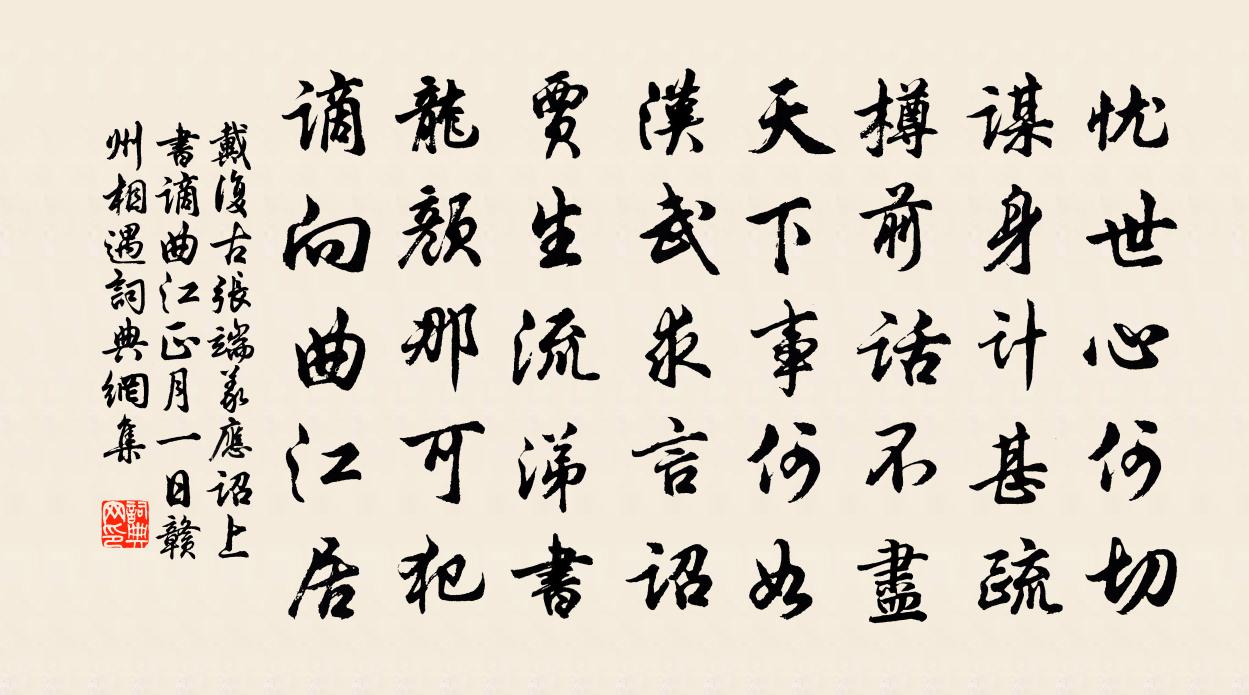 忧世心何切
谋身计甚疏
樽前话不盡
天下事何如
漢武求言詔
賈生流涕書
龍顏那可犯
谪向曲江居
戴復古張端義應詔上
書谪曲江正月一日赣
州相遇詞典網集
詞典网印